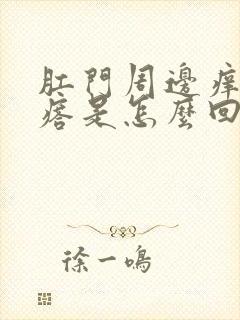 肛門周邊痒
痞是怎麼回
徐一鳴